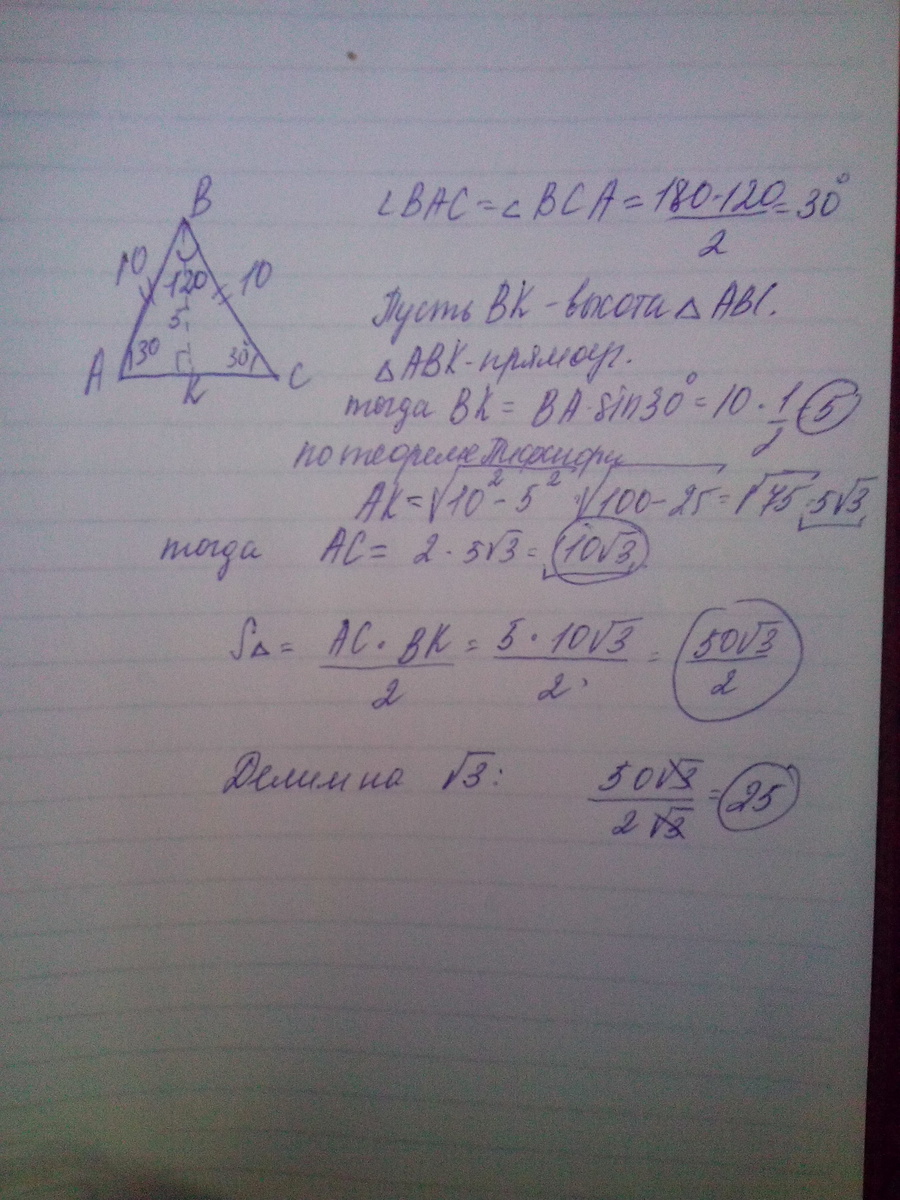 B
10
120
10
5
30
30°
A
K
C
∠BAC = ∠BCA = (180-120)/2 = 30°
Пусть BK - высота △ ABC.
△ABK - прямоуг.
тогда BK = BA·sin30° = 10 · 1/2 5
по теореме Пифагора
AK = √10² - 5² √100 - 25 = √75 5√3
тогда AC = 2 · 5√3 = 10√3
S△ = (AC · BK)/2 = (5 · 10√3)/2 = 50√3/2
Делим на √3: 50√3/2√3 = 25